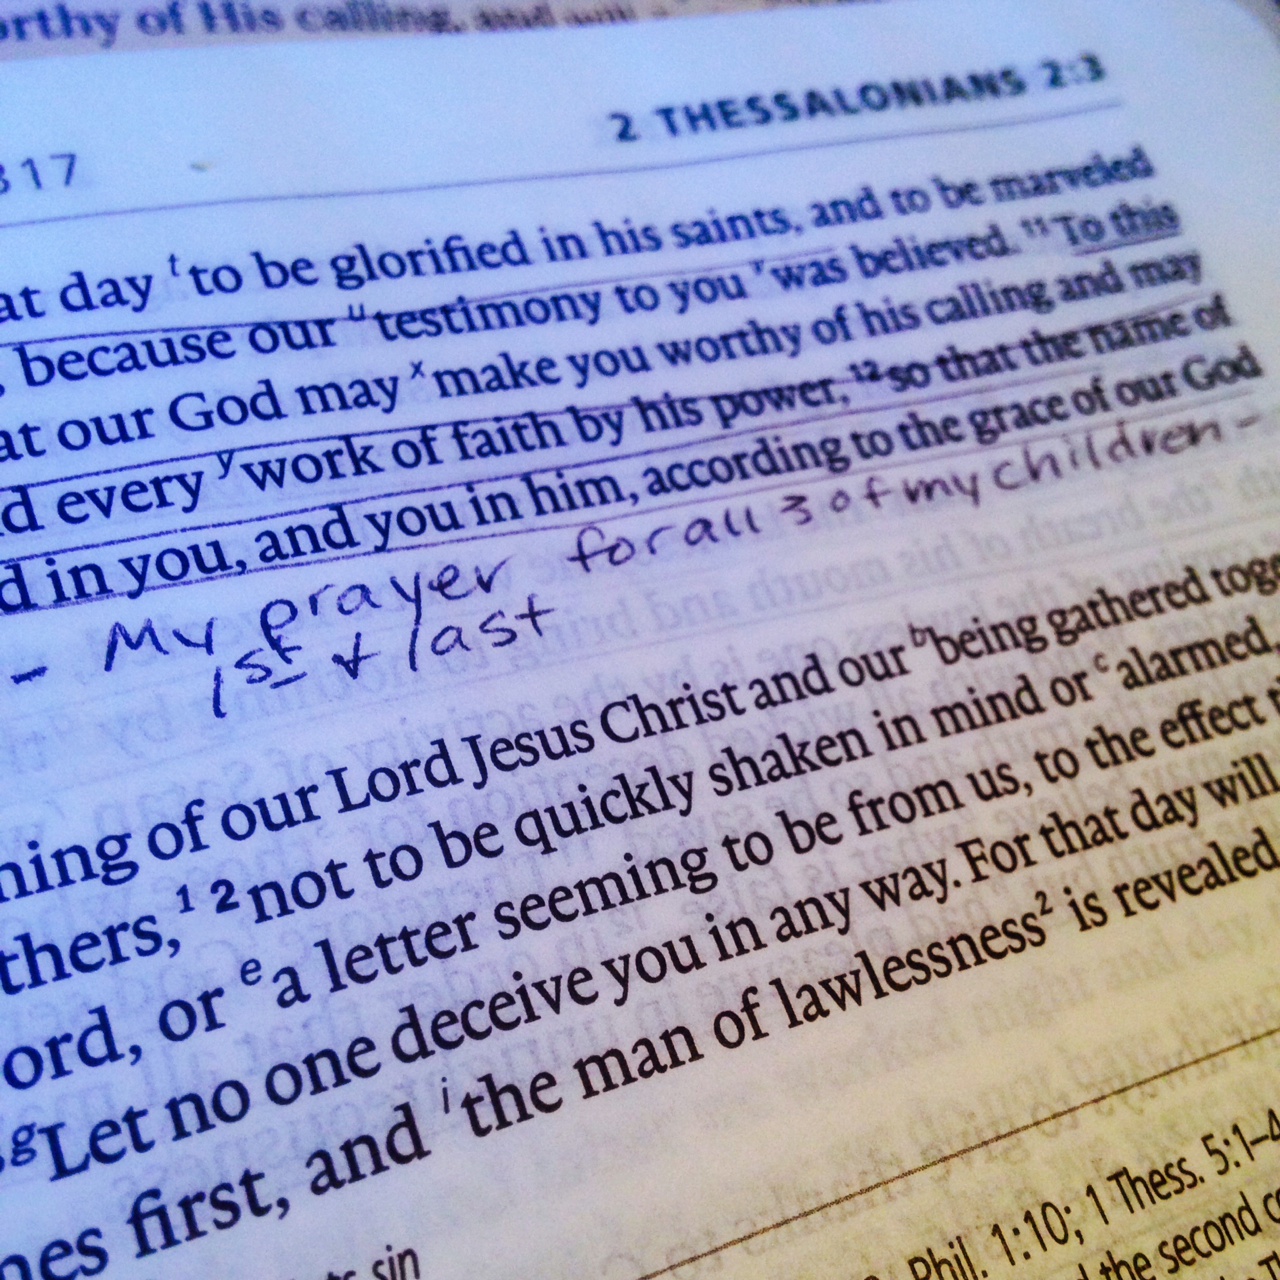 orthy of His calling, and will
2 THESSALONIANS 2:3
317
at day ᵗto be glorified in his saints, and to be marveled
, because our ᵘtestimony to you ᵛwas believed. ¹¹To this
at our God may ˣmake you worthy of his calling and may
d every ʸwork of faith by his power, ¹²so that the name of
d in you, and you in him, according to the grace of our God
- My prayer for all 3 of my children -
1st + last
ning of our Lord Jesus Christ and our ᵇbeing gathered toge
thers,¹ 2 not to be quickly shaken in mind or ᶜalarmed,
ord, or ᵉa letter seeming to be from us, to the effect t
ᵍLet no one deceive you in any way. For that day will
nes first, and ⁱthe man of lawlessness² is revealed
Phil. 1:10; 1 Thess. 5:1–4
sin
d the second co